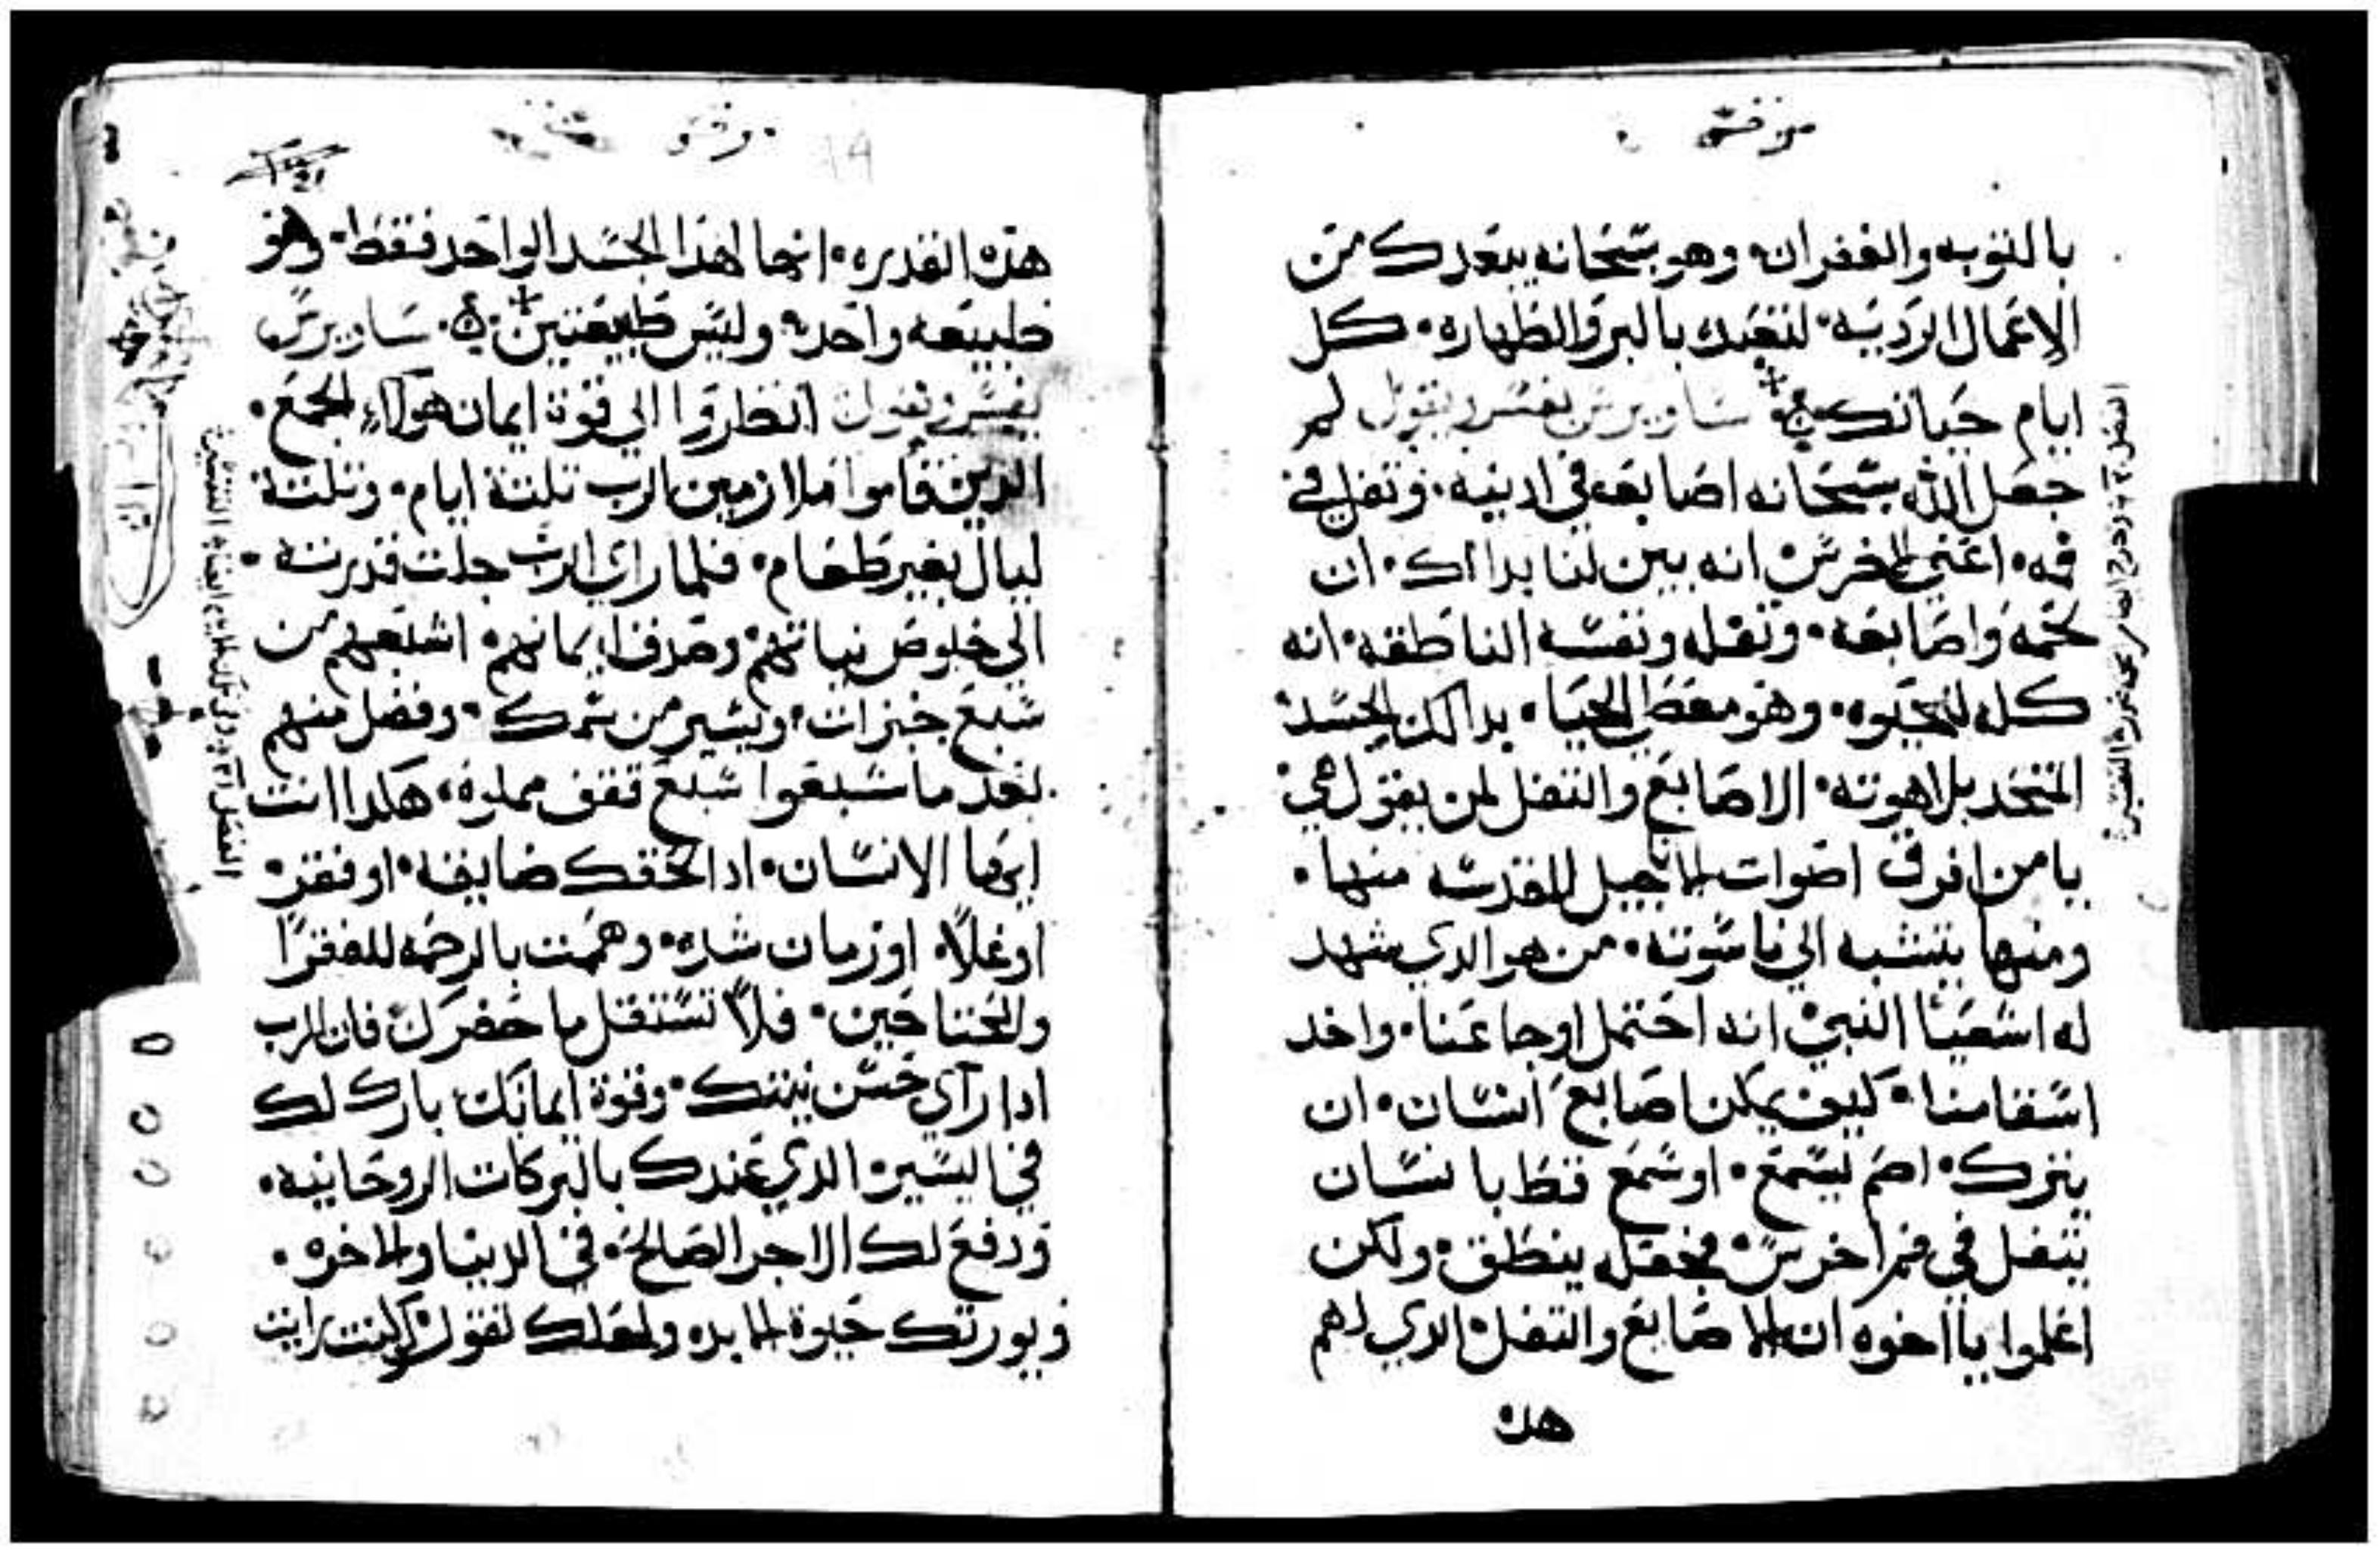 مرقس
بالتوبه والغفران وهو سبحانه يبعدك من
الاعمال الرديه لتتعبد بالبر والطهاره كل
ايام حياتك ساويرس يفسر ويقول لم
جعل الله سبحانه اصابعه في ادينه وتفل في
فمه اعني الاخرس انه بين لنا بدالك ان
لحمه واصابعه وتفله ونفسه الناطقه انه
كله للحيوه وهو معطي الحيا بدالك الجسد
المتحد بلاهوته الاصابع والتفل لمن يقول هي
يا من افرق اصوات الاناجيل المقدسه منها
ومنها ينتسبه الي ناسوته من هو الدي شهد
له اشعيا النبي انه احتمل اوجاعنا واخد
اسقامنا كيف يمكن اصابع انسان ان
يترك اصم ليسمع او سمع قط بانسان
يتفل في فم اخرس فجعله ينطق ولكن
اعلموا يا اخوه ان الاصابع والتفل الدي لهم
هده
مرقس
هده القديره انما لهدا الجسد الواحد فقط وهو
طبيعه واحده وليس طبيعتين ساويرس
يفسر ويقول انظروا الي قوة ايمان هولاء الجمع
الدين قاموا ملازمين الرب تلتة ايام وتلتة
ليال بغير طعام فلما راي الرب جلت قدرته
الي خلوص نياتهم وصدق ايمانهم اشبعهم من
سبع خبزات ويسير من سمك وفضل منهم
بعد ما شبعوا سبع قفف مملوه هكدا انت
ايها الانسان ادا لحقك ضايقه او فقر
او غلا او زمان شده وهممت بالرحمه للفقرا
والمحتاجين فلا تستقل ما حضرك فان الرب
ادا راي حسن نيتك وقوة ايمانك بارك لك
في اليسير الدي عندك بالبركات الروحانيه
ودفع لك الاجر الصالح في الدنيا والاخره
ويورتك حيوة الابد ولعلك تقول كنت رايت